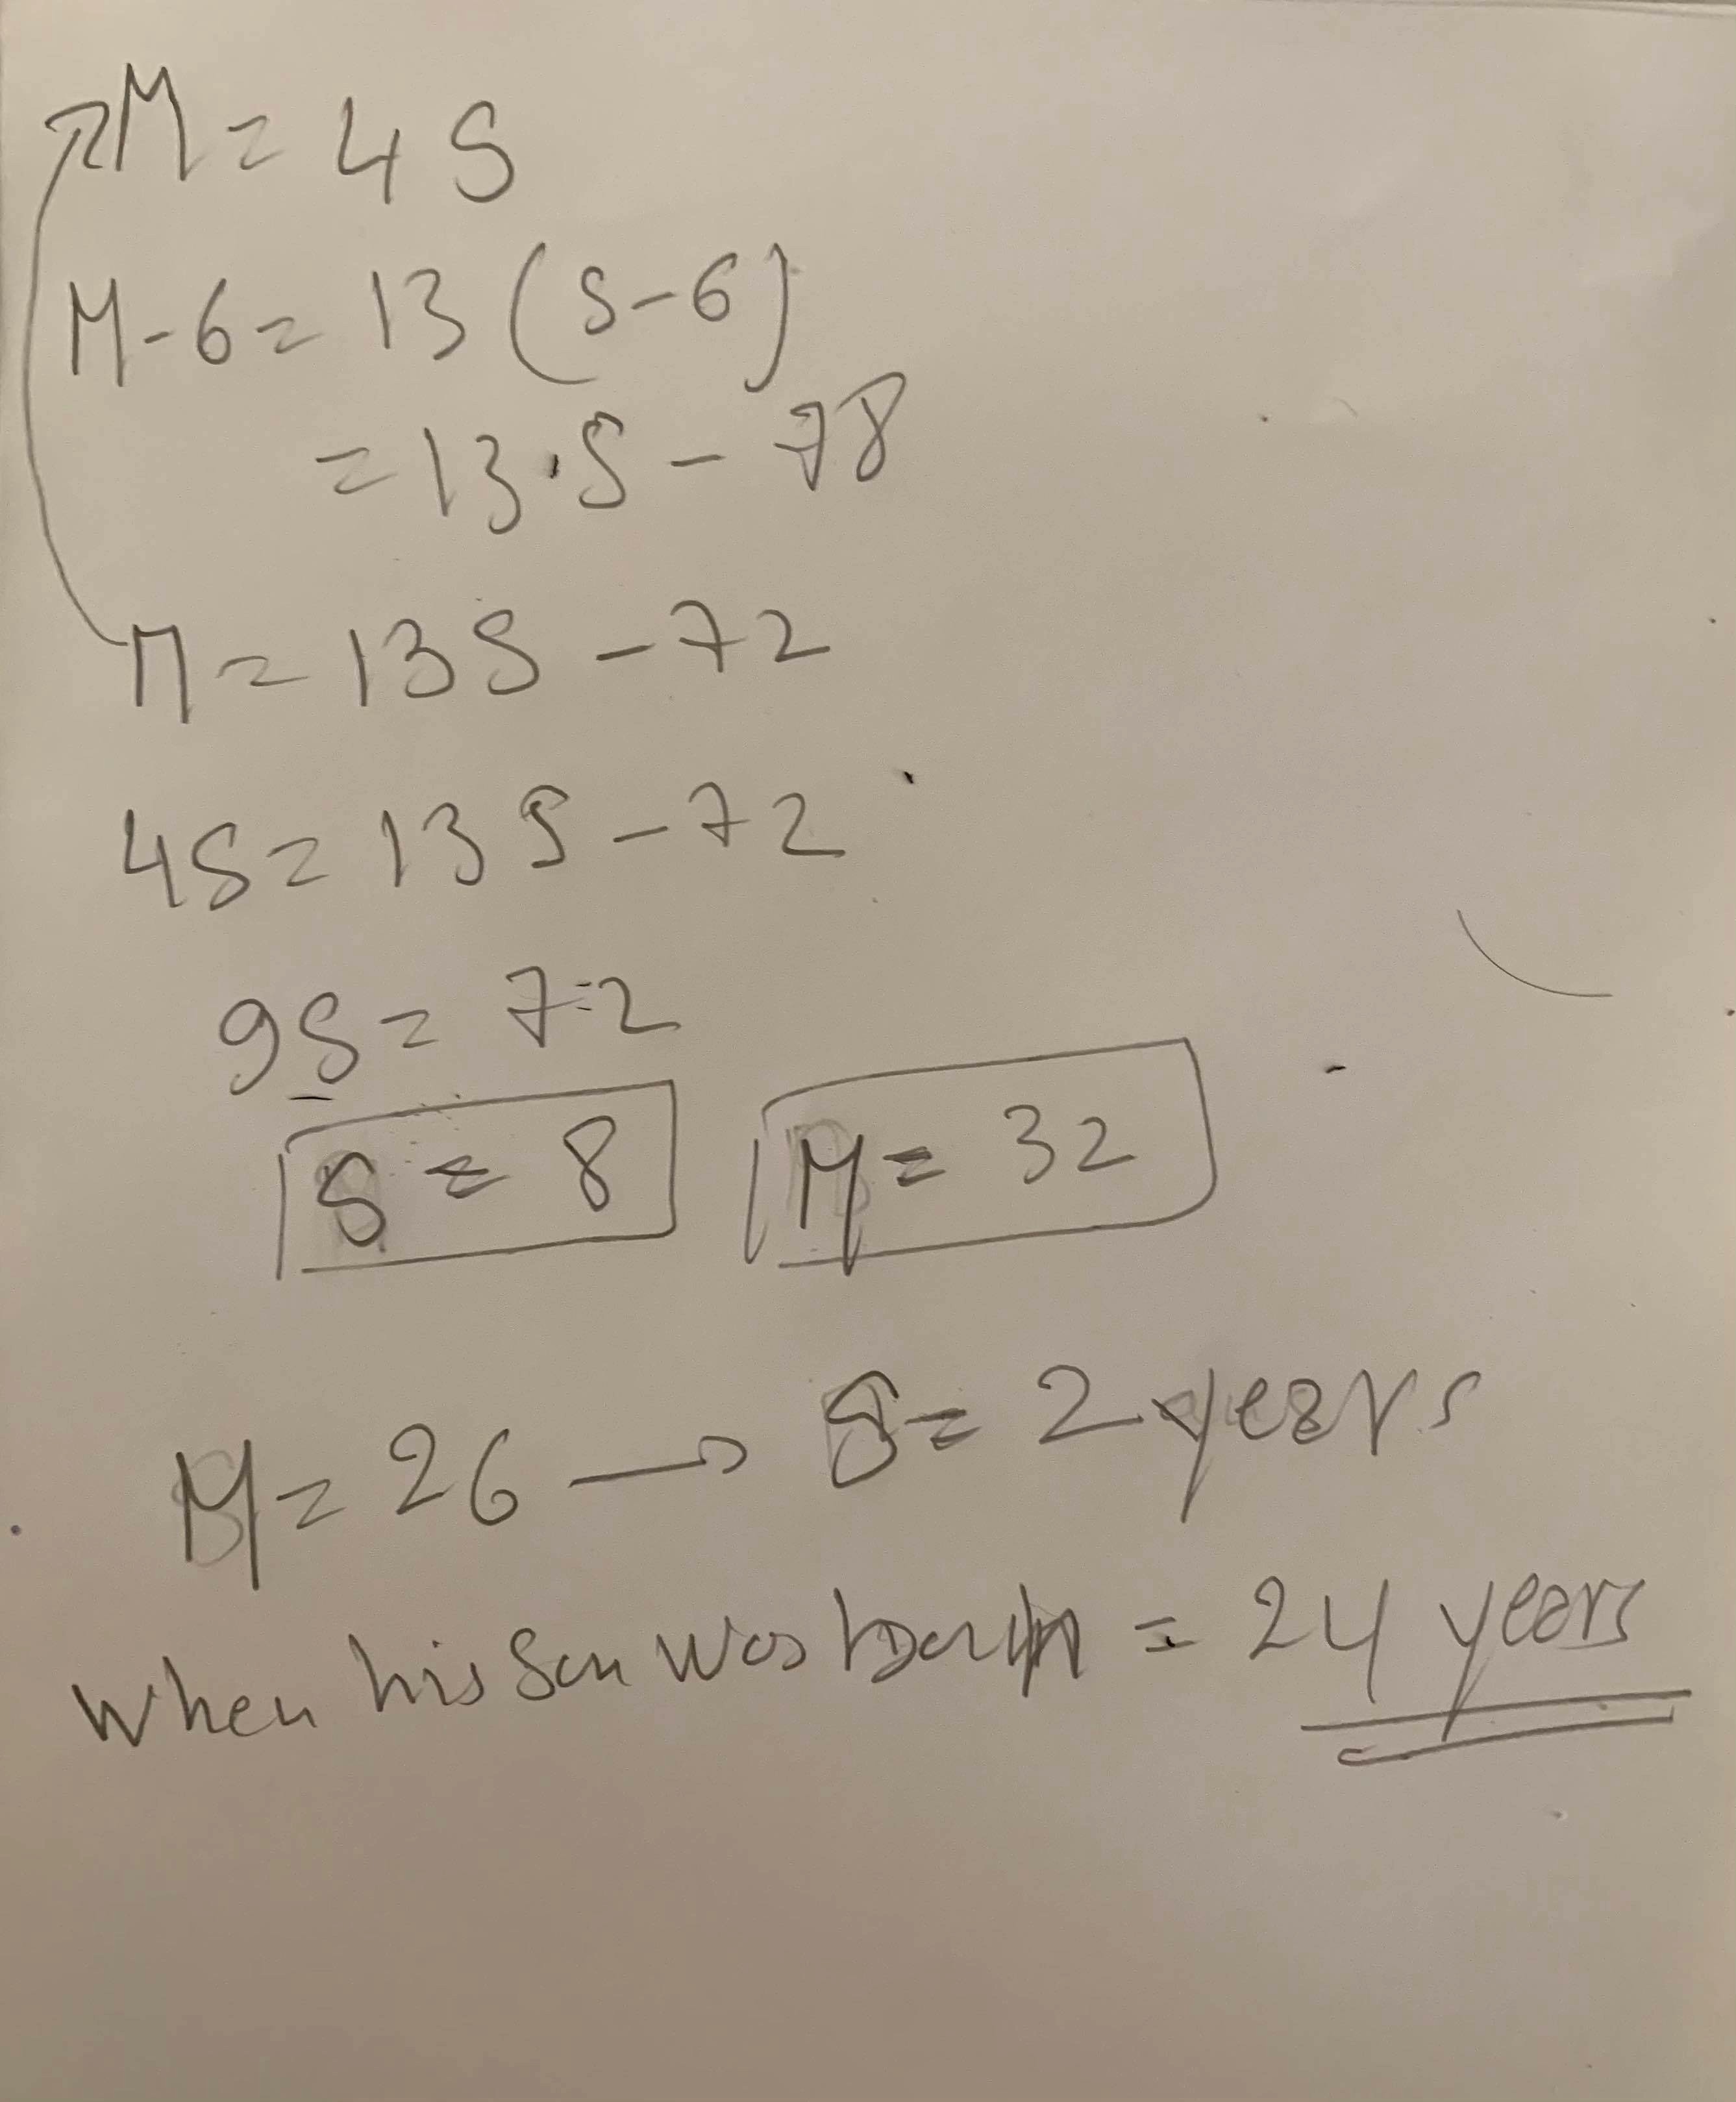 M = 4 S
M - 6 = 13 (S - 6)
= 13 · S - 78
M = 13 S - 72
4S = 13 S - 72
9S = 72
S = 8 M = 32
M = 26 → S = 2 years
When his son was born = 24 years